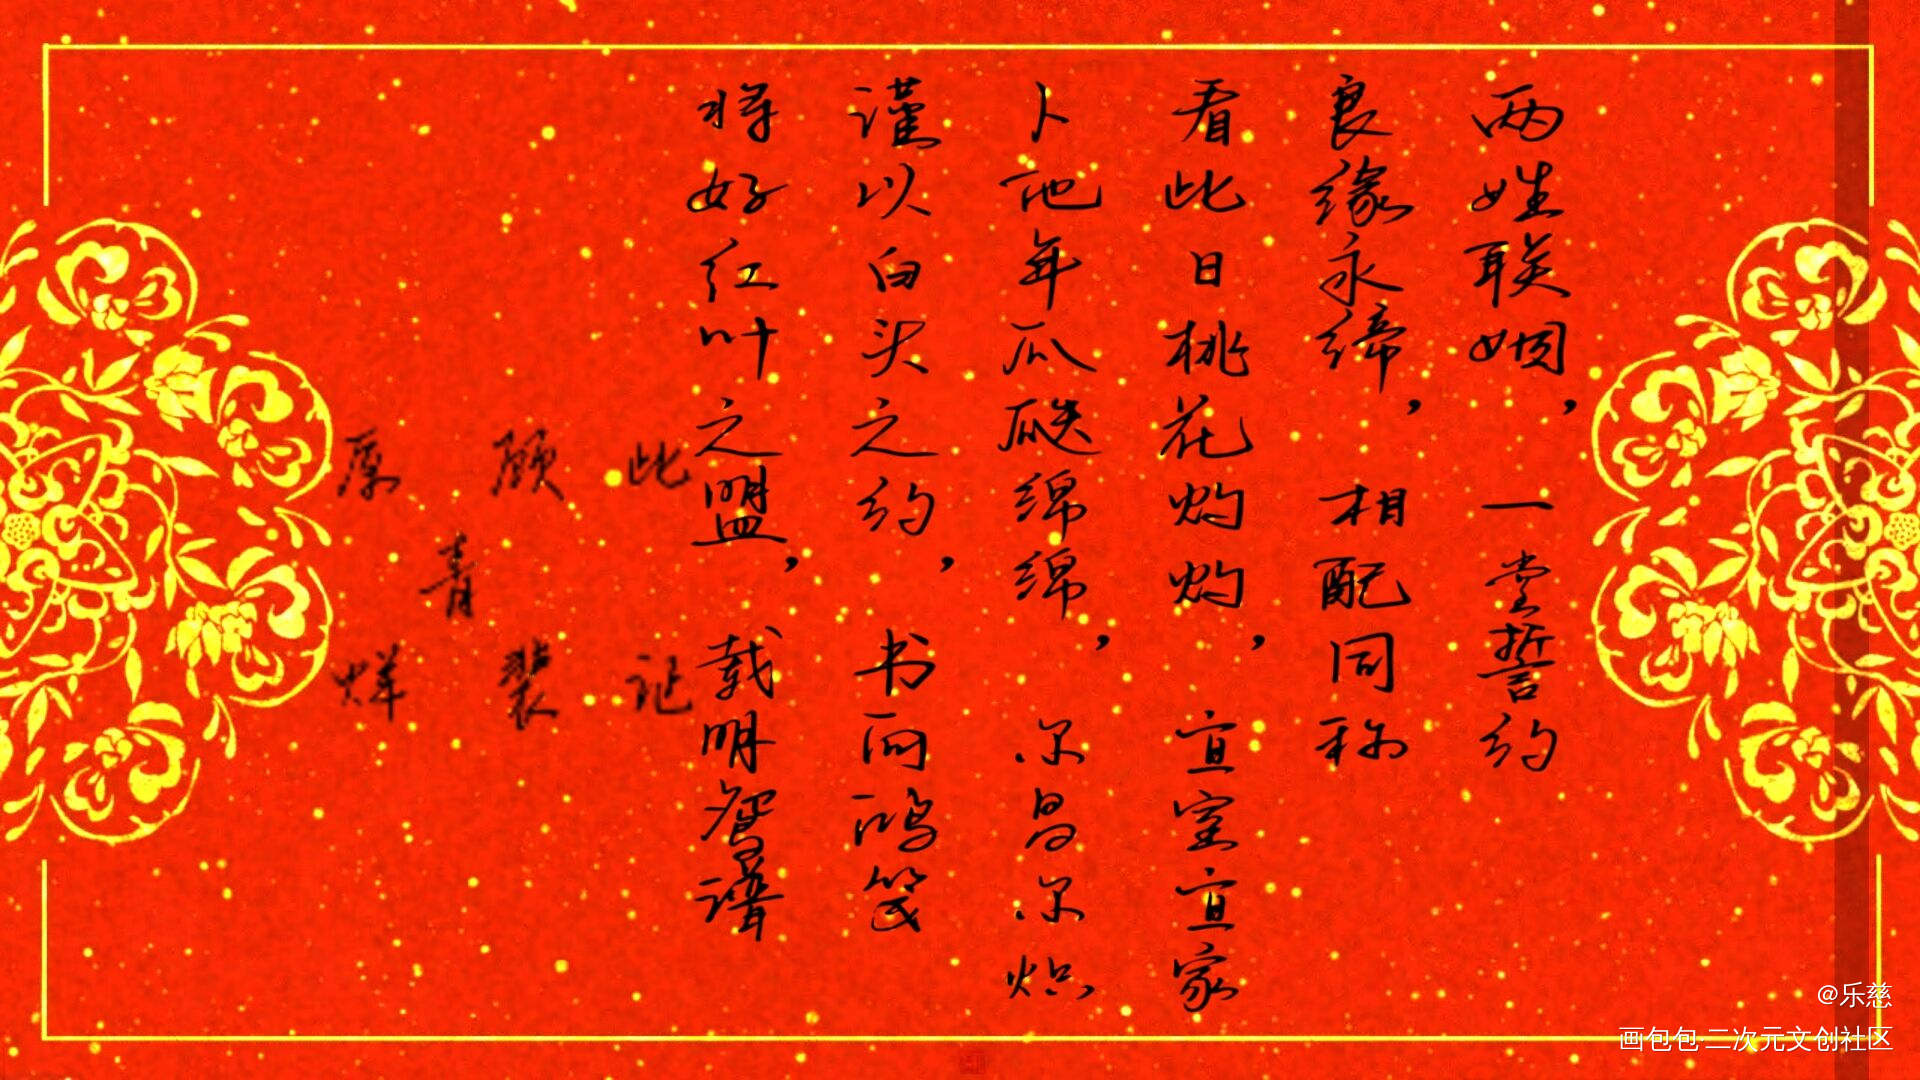 两姓联姻，一堂誓约
良缘永缔，相配同称
看此日桃花灼灼，宜室宜家
卜他年瓜瓞绵绵，尔昌尔炽
谨以白头之约，书向鸿笺
将好红叶之盟，载明鸳谱
此证
顾青裴
原烊
@乐慈
画包包·二次元文创社区